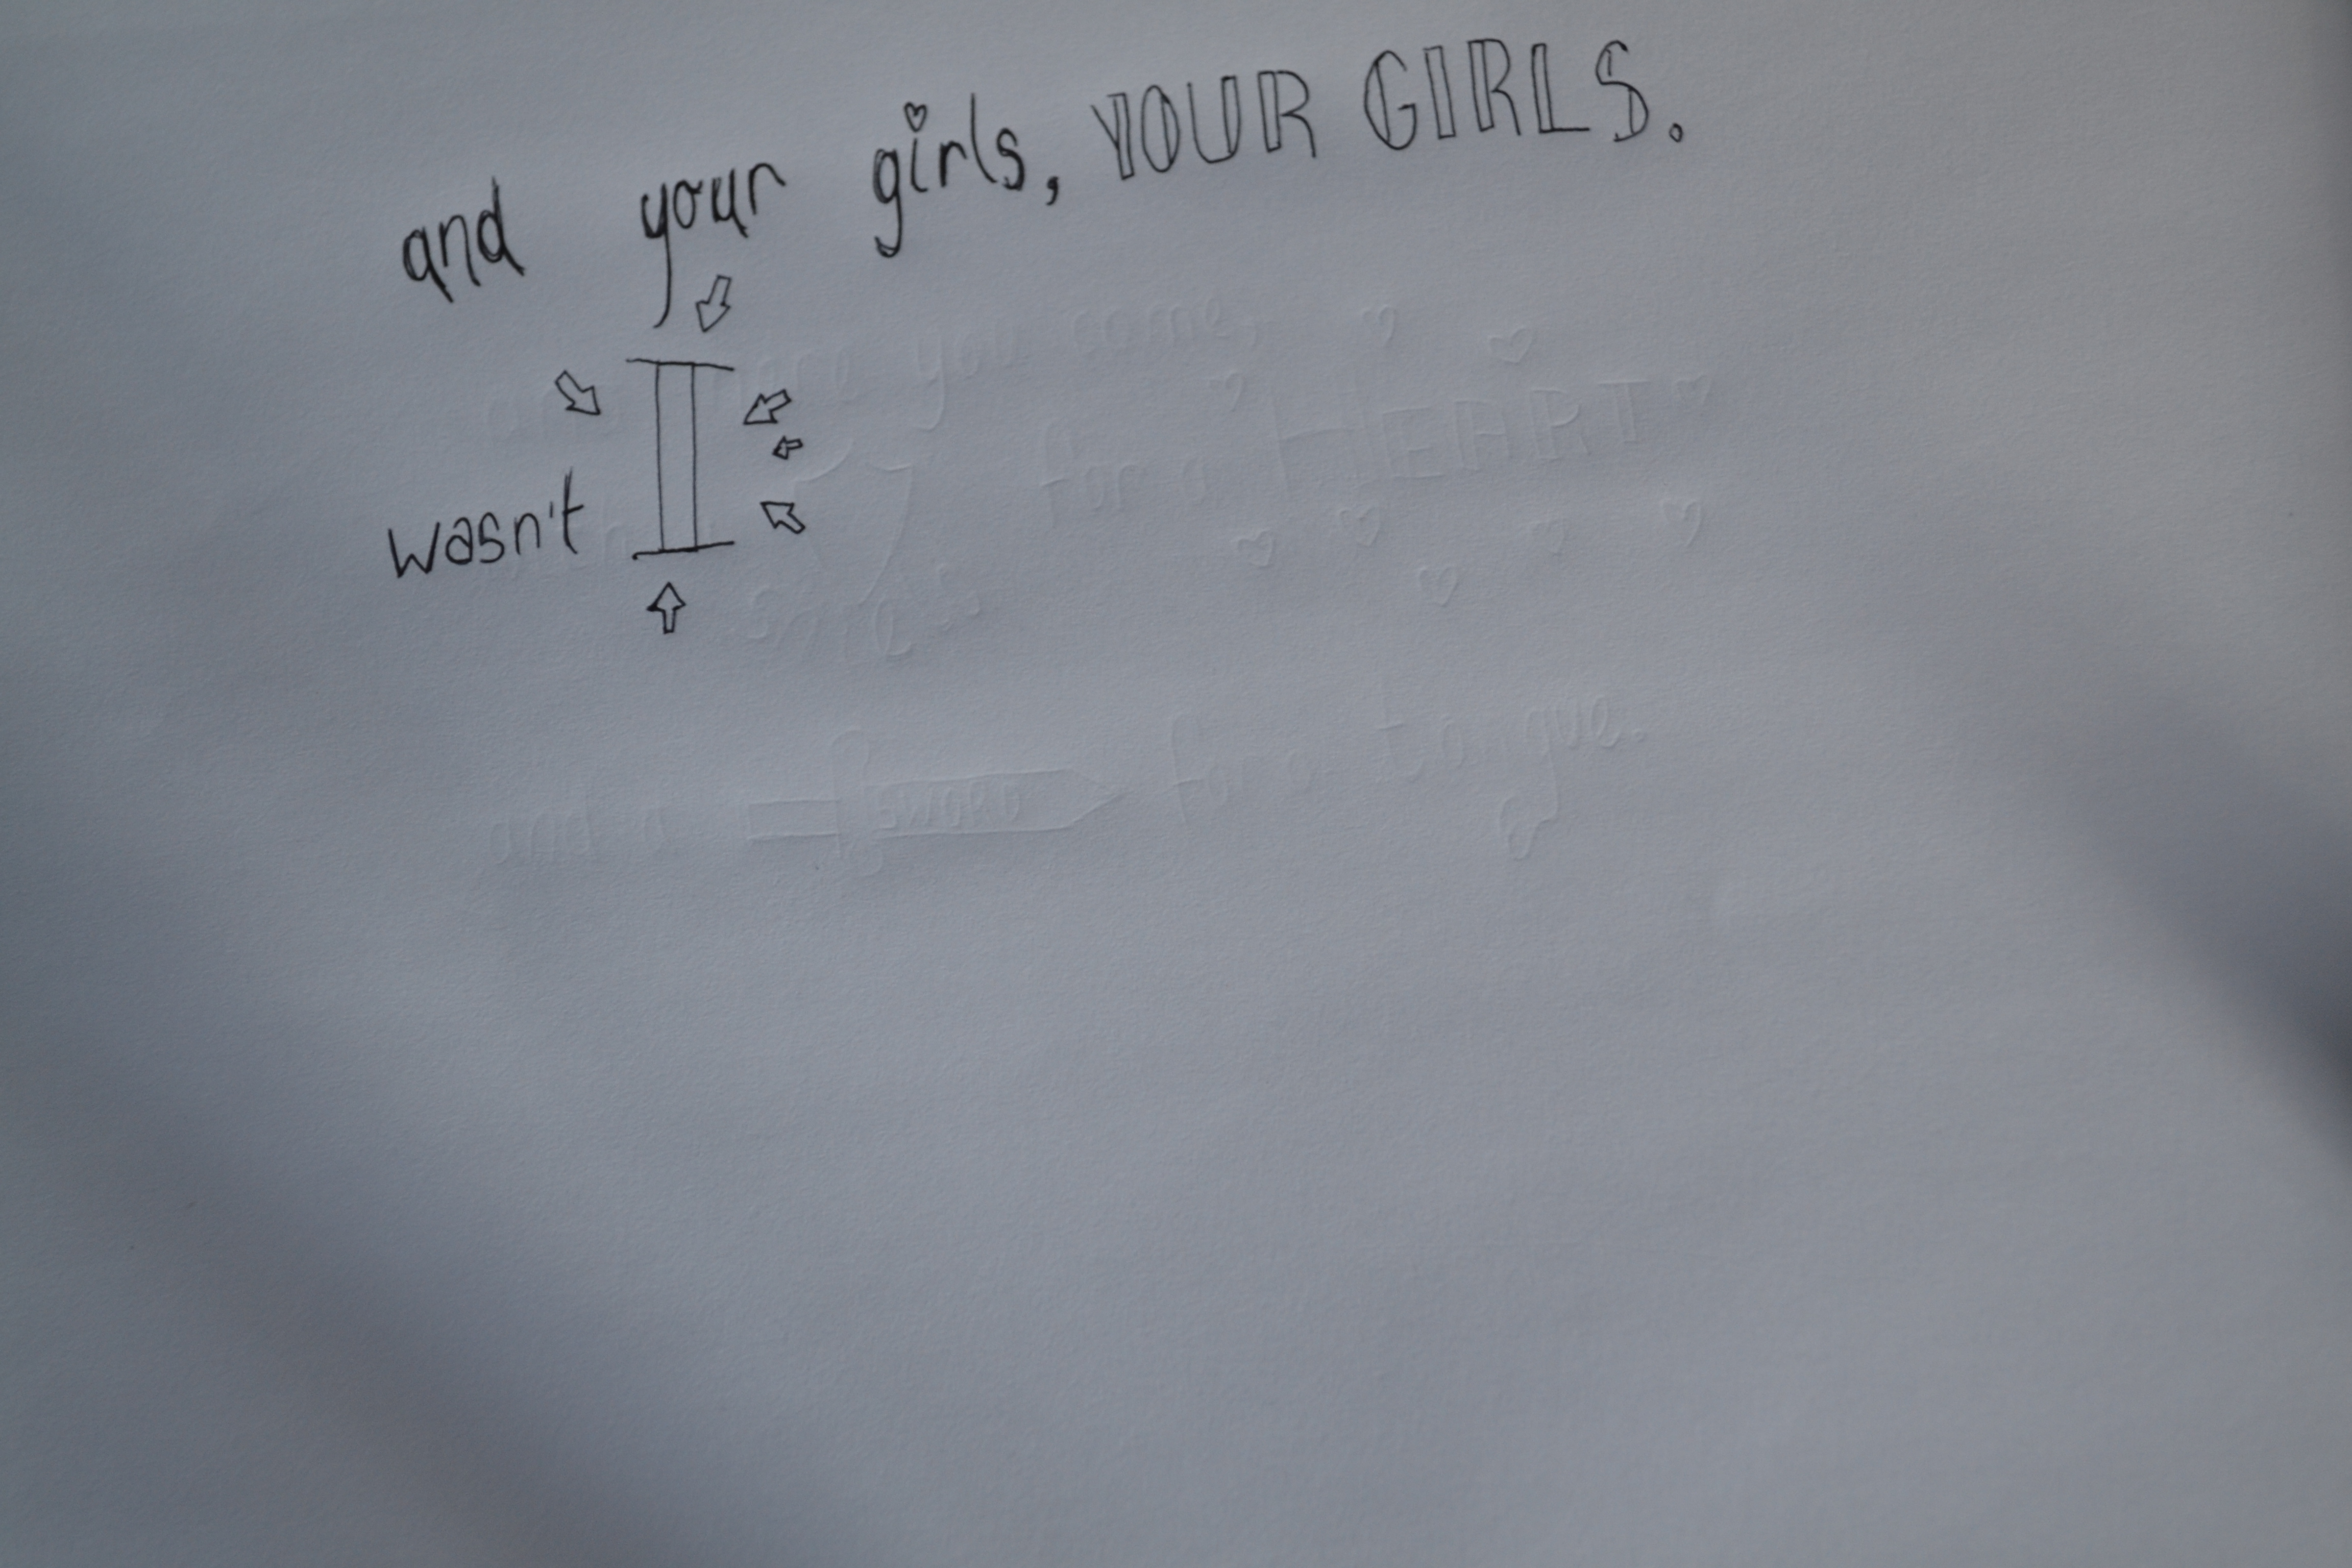 and your girls, YOUR GIRLS.
wasn't I
you came,
for a HEART
and a SWORD for a tongue.